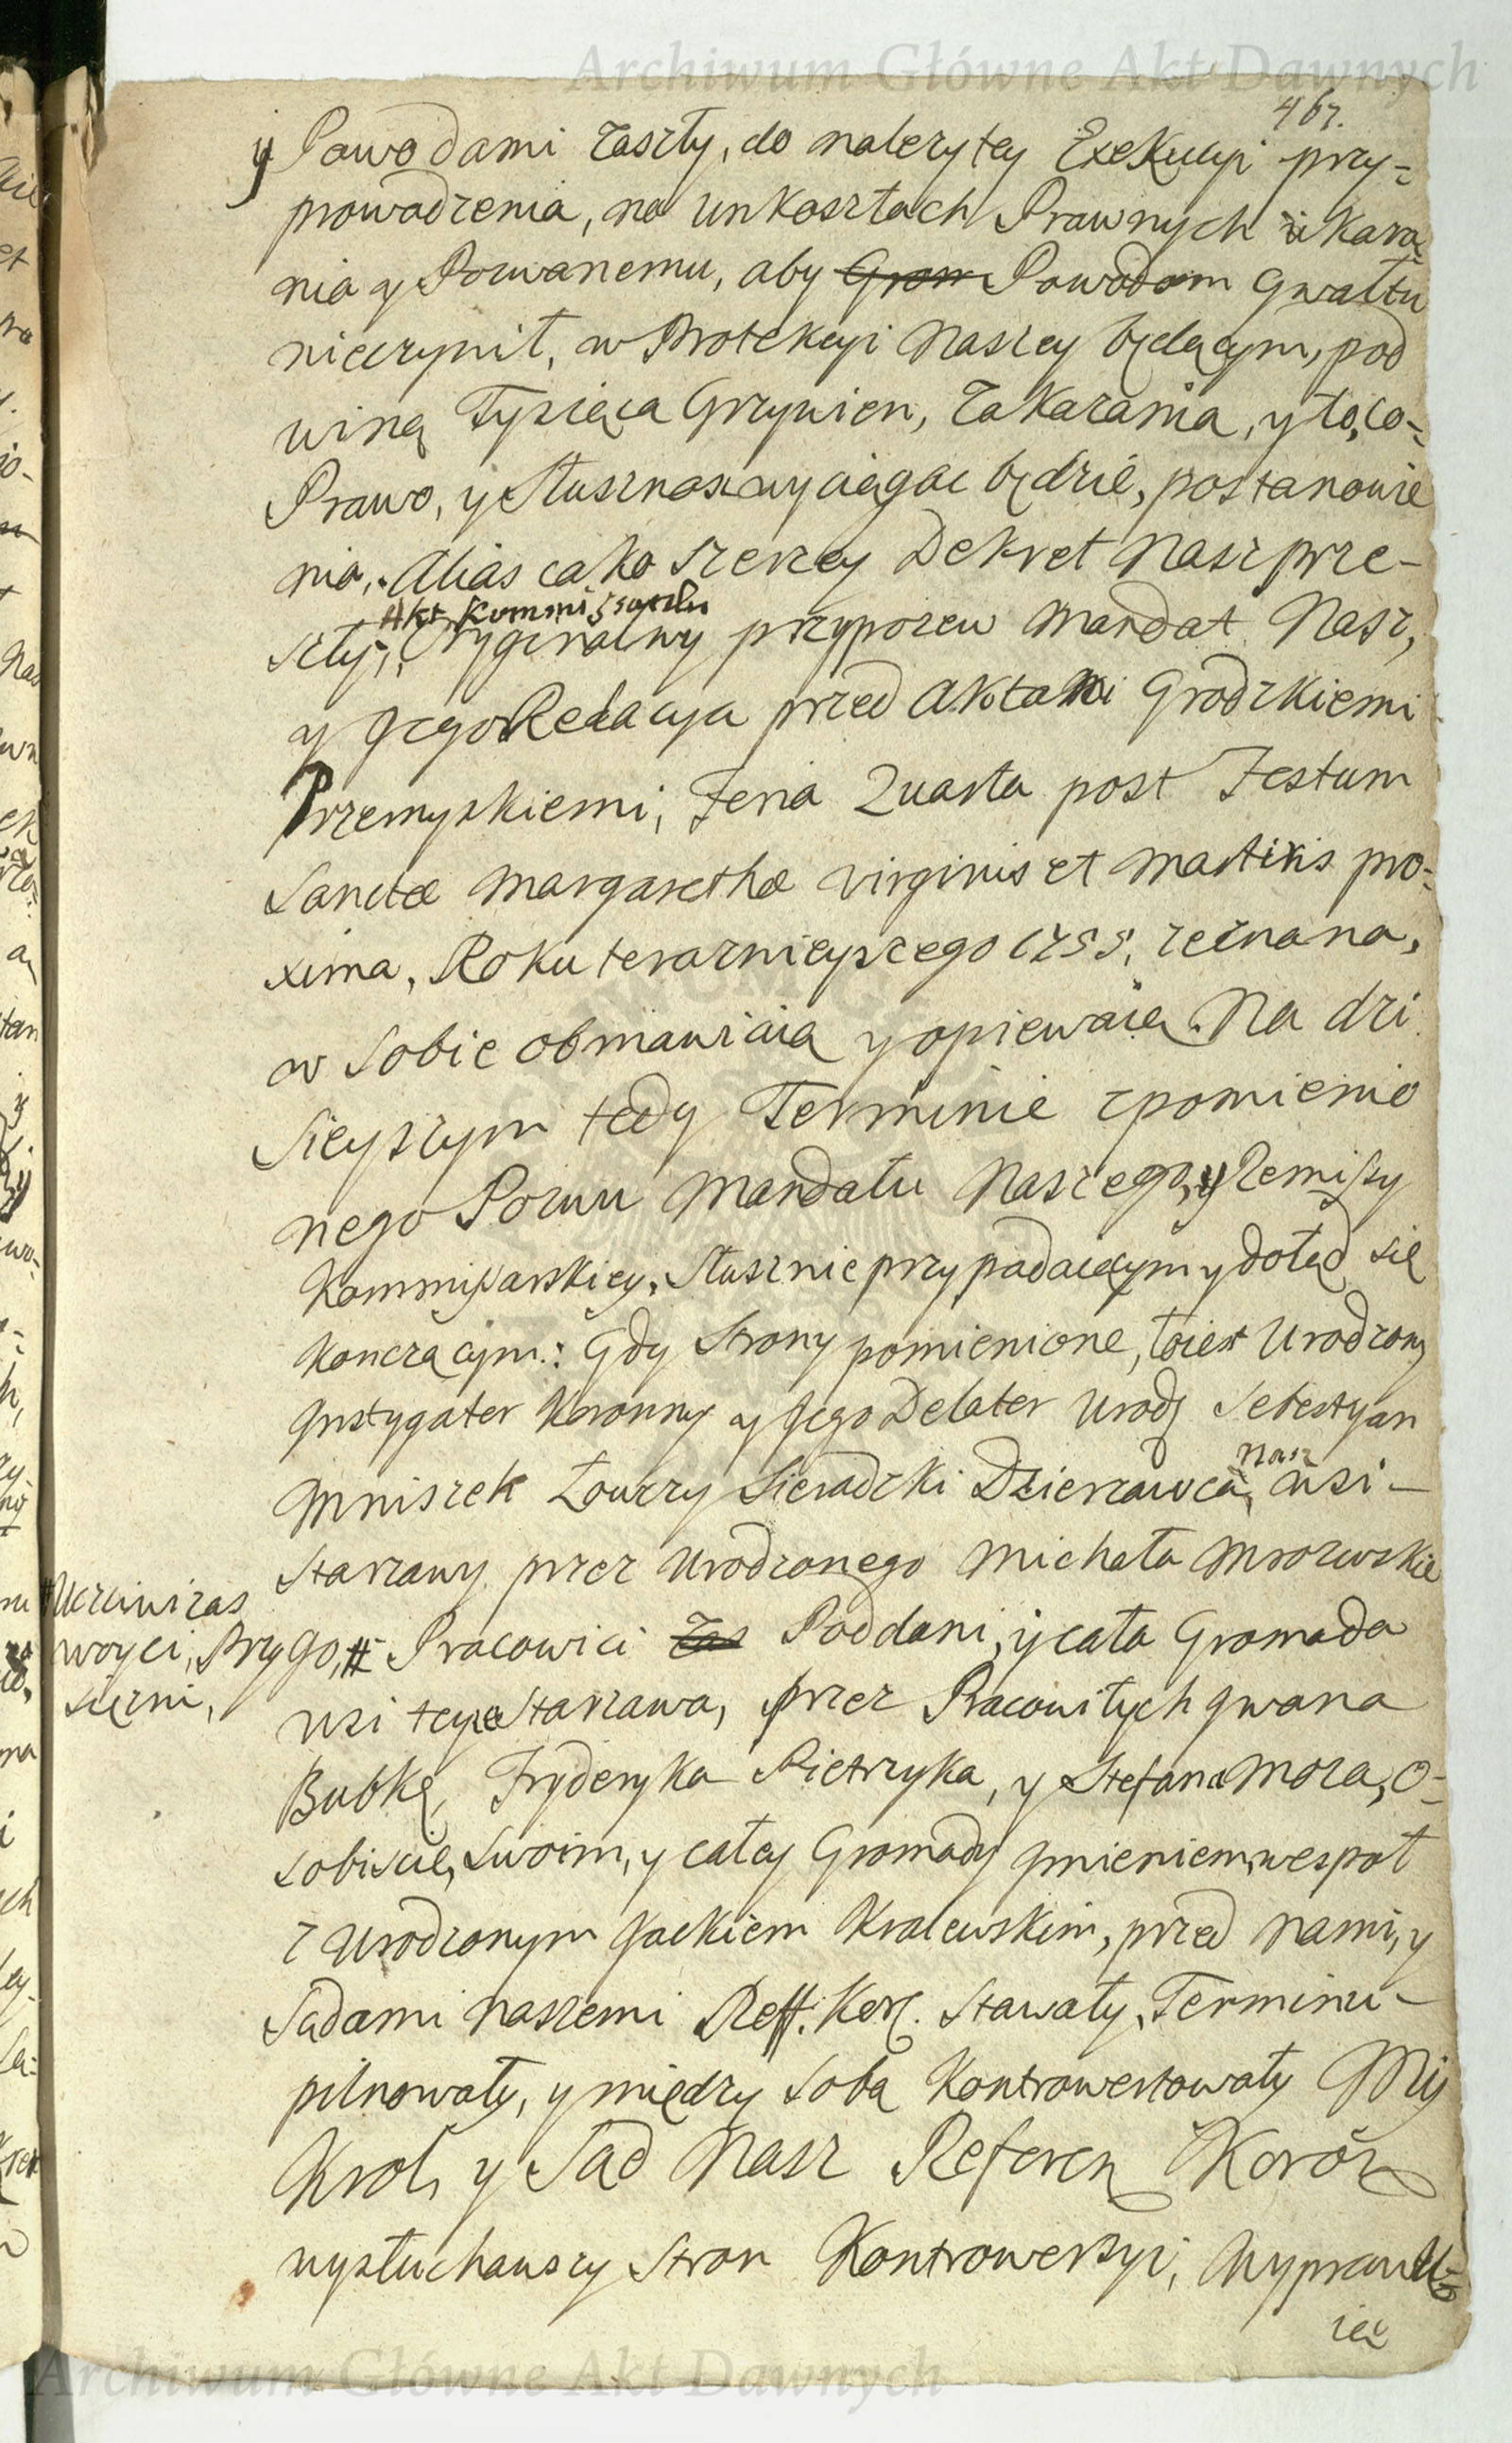 Archiwum Główne Akt Dawnych
467.
y Powodami zaszły, do należytey Exekucyi przy-
prowadzenia, na unkosztach Prawnych ukara
nia y Pozwanemu, aby Grom Powodom Gwałtu
nieczynił, w Protekcyi Naszey będącym, pod
winą Tysiąca Grzywien, zakazania, y to, co-
Prawo, y Słusznosc wyciągac będzie, postanowie
nia, Alias jako szerzey Dekret Nasz prze-
Akt Kommissyalny
szły, Oryginalny przypozew Mandat Nasz,
y Jego Relacya przed Aktami Grodzkiemi
Przemyskiemi, Feria Quarta post Festum
Sanctæ Margarethæ Virginis et Martiris pro-
xima, Roku teraznieyszego 1755, zeznana,
w sobie obmawiaią y opiewaią. Na dzi
sieyszym tedy Terminie z pomienio
nego Pozwu Mandatu Naszego, y Remissy
Kommissarskiey, Słusznie przypadaiącym y dotąd się
konczącym: Gdy Strony pomienione, to iest Urodzony
Instygator Koronny y Jego Delator Urodz Sebestyan
Mniszek Łowczy Sieradzki Dzierzawca nasz wsi-
Starzawy przez Urodzonego Michała Mrozewskie
# Uczciwi zas
woyci, Przy
sięzni,
go, # Pracowici zas Poddani, y cała Gromada
wsi teyze Starzawa, przez Pracowitych Jwana
Bubkę, Fryderyka Pietrzyka, y Stefana Moza, O-
sobiscie, Swoim, y całey Gromady Jmieniem, wespoł
z Urodzonym Jackiem Kralewskim, przed Nami, y
Sądami Naszemi Reff. Kor. Stawały, Terminu-
pilnowały, y między sobą Kontrowertowały My
Krol, y Sąd Nasz Referen Koron
wysłuchawszy Stron Kontrowersyi, Wyprawu-
iąc
Archiwum Główne Akt Dawnych